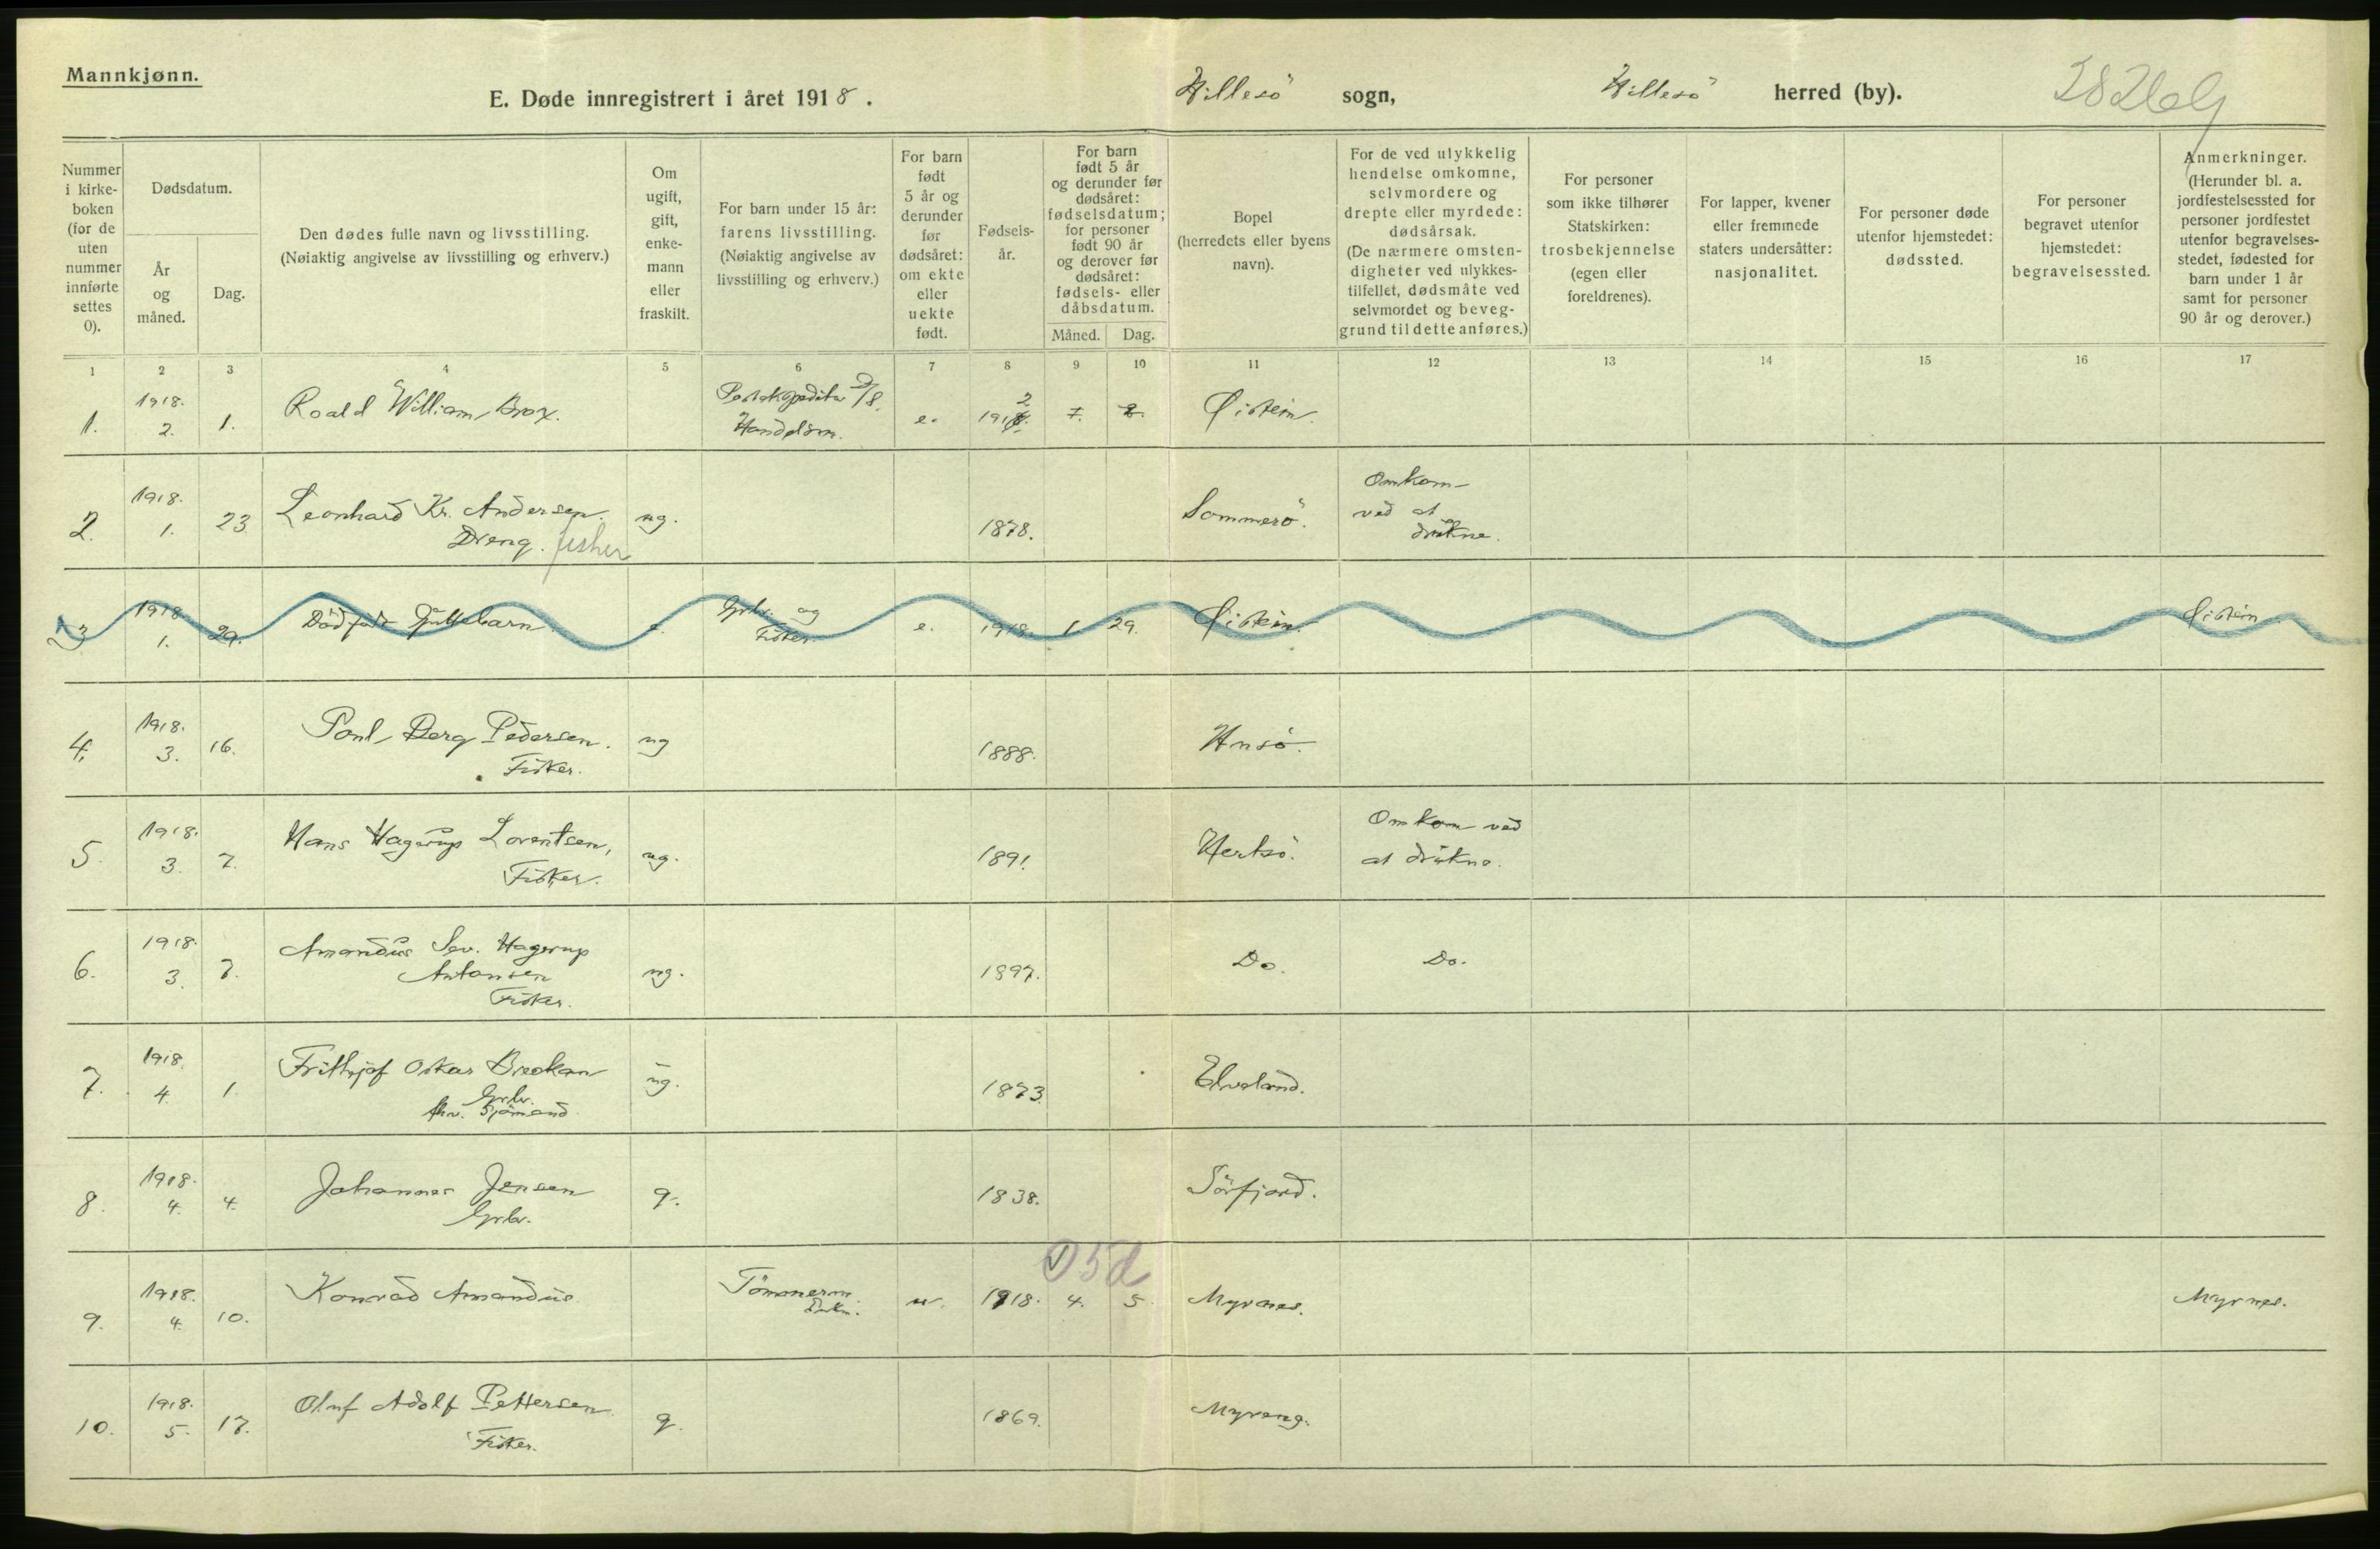 Mannkjønn.
E. Døde innregistrert i året 1918.
Hillesö sogn,
Hillesö herred (by).
Nummer i kirkeboken (for de uten nummer innførte settes 0).
Dødsdatum.
År og måned.
Dag.
Den dødes fulle navn og livsstilling.
(Nøiaktig angivelse av livsstilling og erhverv.)
Om ugift, gift, enkemann eller fraskilt.
For barn under 15 år: farens livsstilling.
(Nøiaktig angivelse av livsstilling og erhverv.)
For barn født 5 år og derunder før dødsåret: om ekte eller uekte født.
Fødselsår.
For barn født 5 år og derunder før dødsåret: fødselsdatum; for personer født 90 år og derover før dødsåret: fødsels- eller dåbsdatum.
Måned.
Dag.
Bopel
(herredets eller byens navn).
For de ved ulykkelig hendelse omkomne, selvmordere og drepte eller myrdede: dødsårsak.
(De nærmere omstendigheter ved ulykkestilfellet, dødsmåte ved selvmordet og beveggrund til dette anføres.)
For personer som ikke tilhører Statskirken: trosbekjennelse (egen eller foreldrenes).
For lapper, kvener eller fremmede staters undersåtter: nasjonalitet.
For personer døde utenfor hjemstedet: dødssted.
For personer begravet utenfor hjemstedet: begravelsessted.
Anmerkninger.
(Herunder bl. a. jordfestelsessted for personer jordfestet utenfor begravelsesstedet, fødested for barn under 1 år samt for personer 90 år og derover.)
1 2 3 4 5 6 7 8 9 10 11 12 13 14 15 16 17
1. 1918. 2. 1. Roald William Brox. Postekspeditør Handelsm. e. 191 2 7. 2. Øistein.
2. 1918. 1. 23. Leonhard Kr. Andersen. ug. 1878. Sommerö. Omkom
Dreng. fisker ved at
drukne.
3. 1918. 1. 29. Dödfödt Guttebarn e. Grbr. og Fisker. e. 1918. 1. 29. Øistein. Øistein
4. 1918. 3. 16. Paul Berg Pedersen. ug 1888.
Fisker.
5. 1918. 3. 7. Hans Hagerup Lorentsen, ug. 1891. Hertsö. Omkom ved
Fisker. at drukne.
6. 1918. 3. 7. Amandus Sev. Hagerup
Antonsen ug. 1897. Do. Do.
Fisker.
7. 1918. 4. 1. Frithjof Oskar ug. 1873. Elveland.
Grbr.
Sjömand
8. 1918. 4. 4. Johannes Jensen g. 1838. Sörfjord.
Grbr.
05d
9. 1918. 4. 10. Konrad Amandus Tömmerm. u. 1918. 4. 5. Myrnes. Myrnes.
10. 1918. 5. 17. Oluf Adolf Pettersen g. 1869. Myreng.
Fisker.